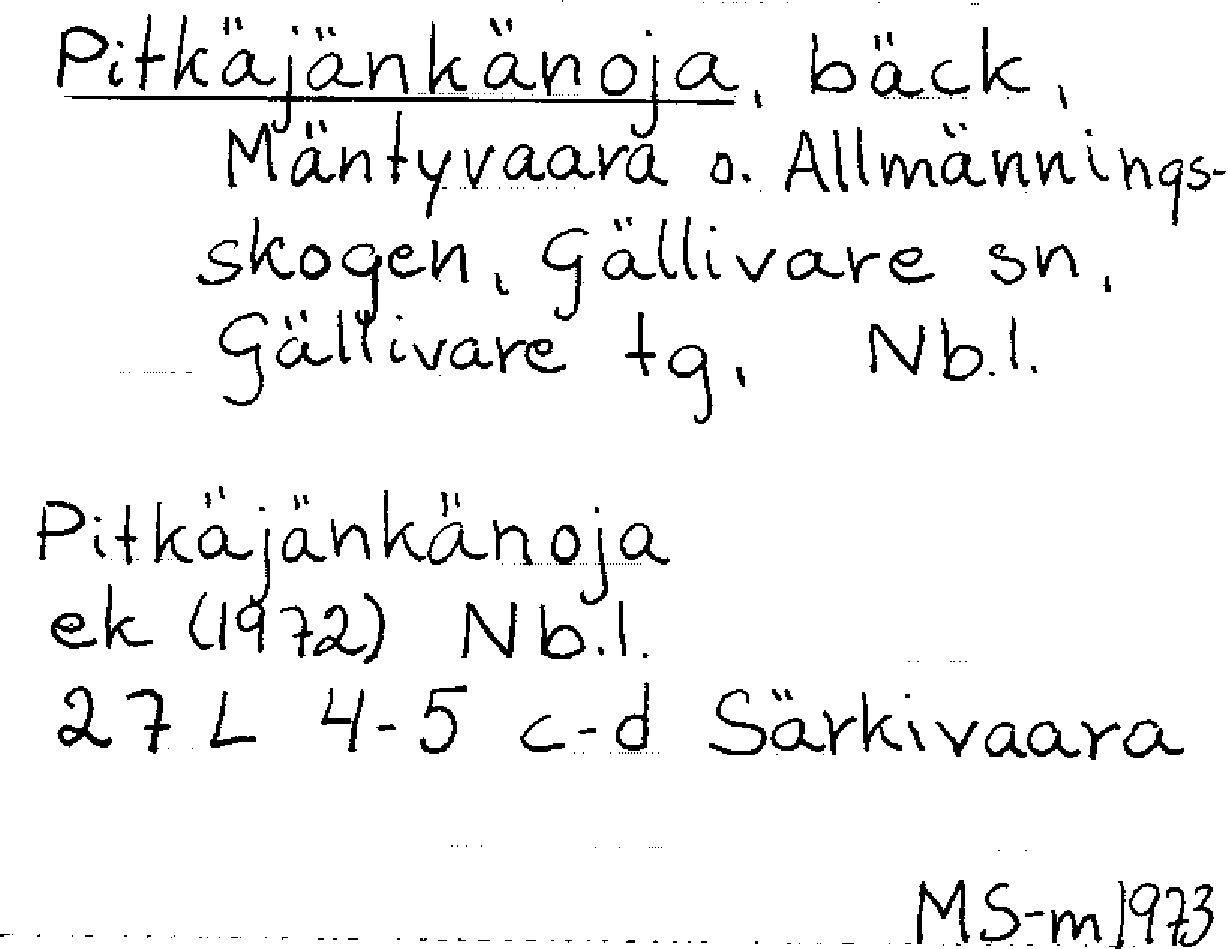 Pitkäjänkänoja, bäck,
Mäntyvaara o. Allmännings-
skogen, Gällivare sn,
Gällivare tg, Nb.l.
Pitkäjänkänoja
ek (1972) Nb.l.
27 L 4-5 c-d Särkivaara
MS-m 1973